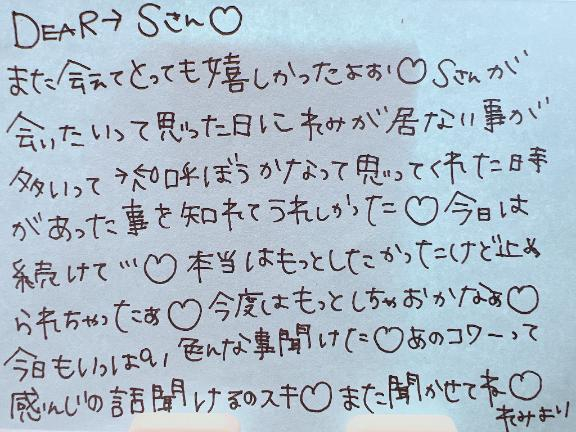 DEAR→ Sさん♡
また会えてとっても嬉しかったよぉ♡Sさんが
会いたいって思った日にれみが居ない事が
多いって 呼ぼうかなって思ってくれた日時
があった事を知れてうれしかった♡今日は
続けて…♡本当はもっとしたかったけど止め
られちゃったぁ♡今度はもっとしちゃおかなぁ♡
今日もいっぱい色んな事聞けた♡あのコワーって
感んじの話聞けるのスキ♡また聞かせてね♡
れみより